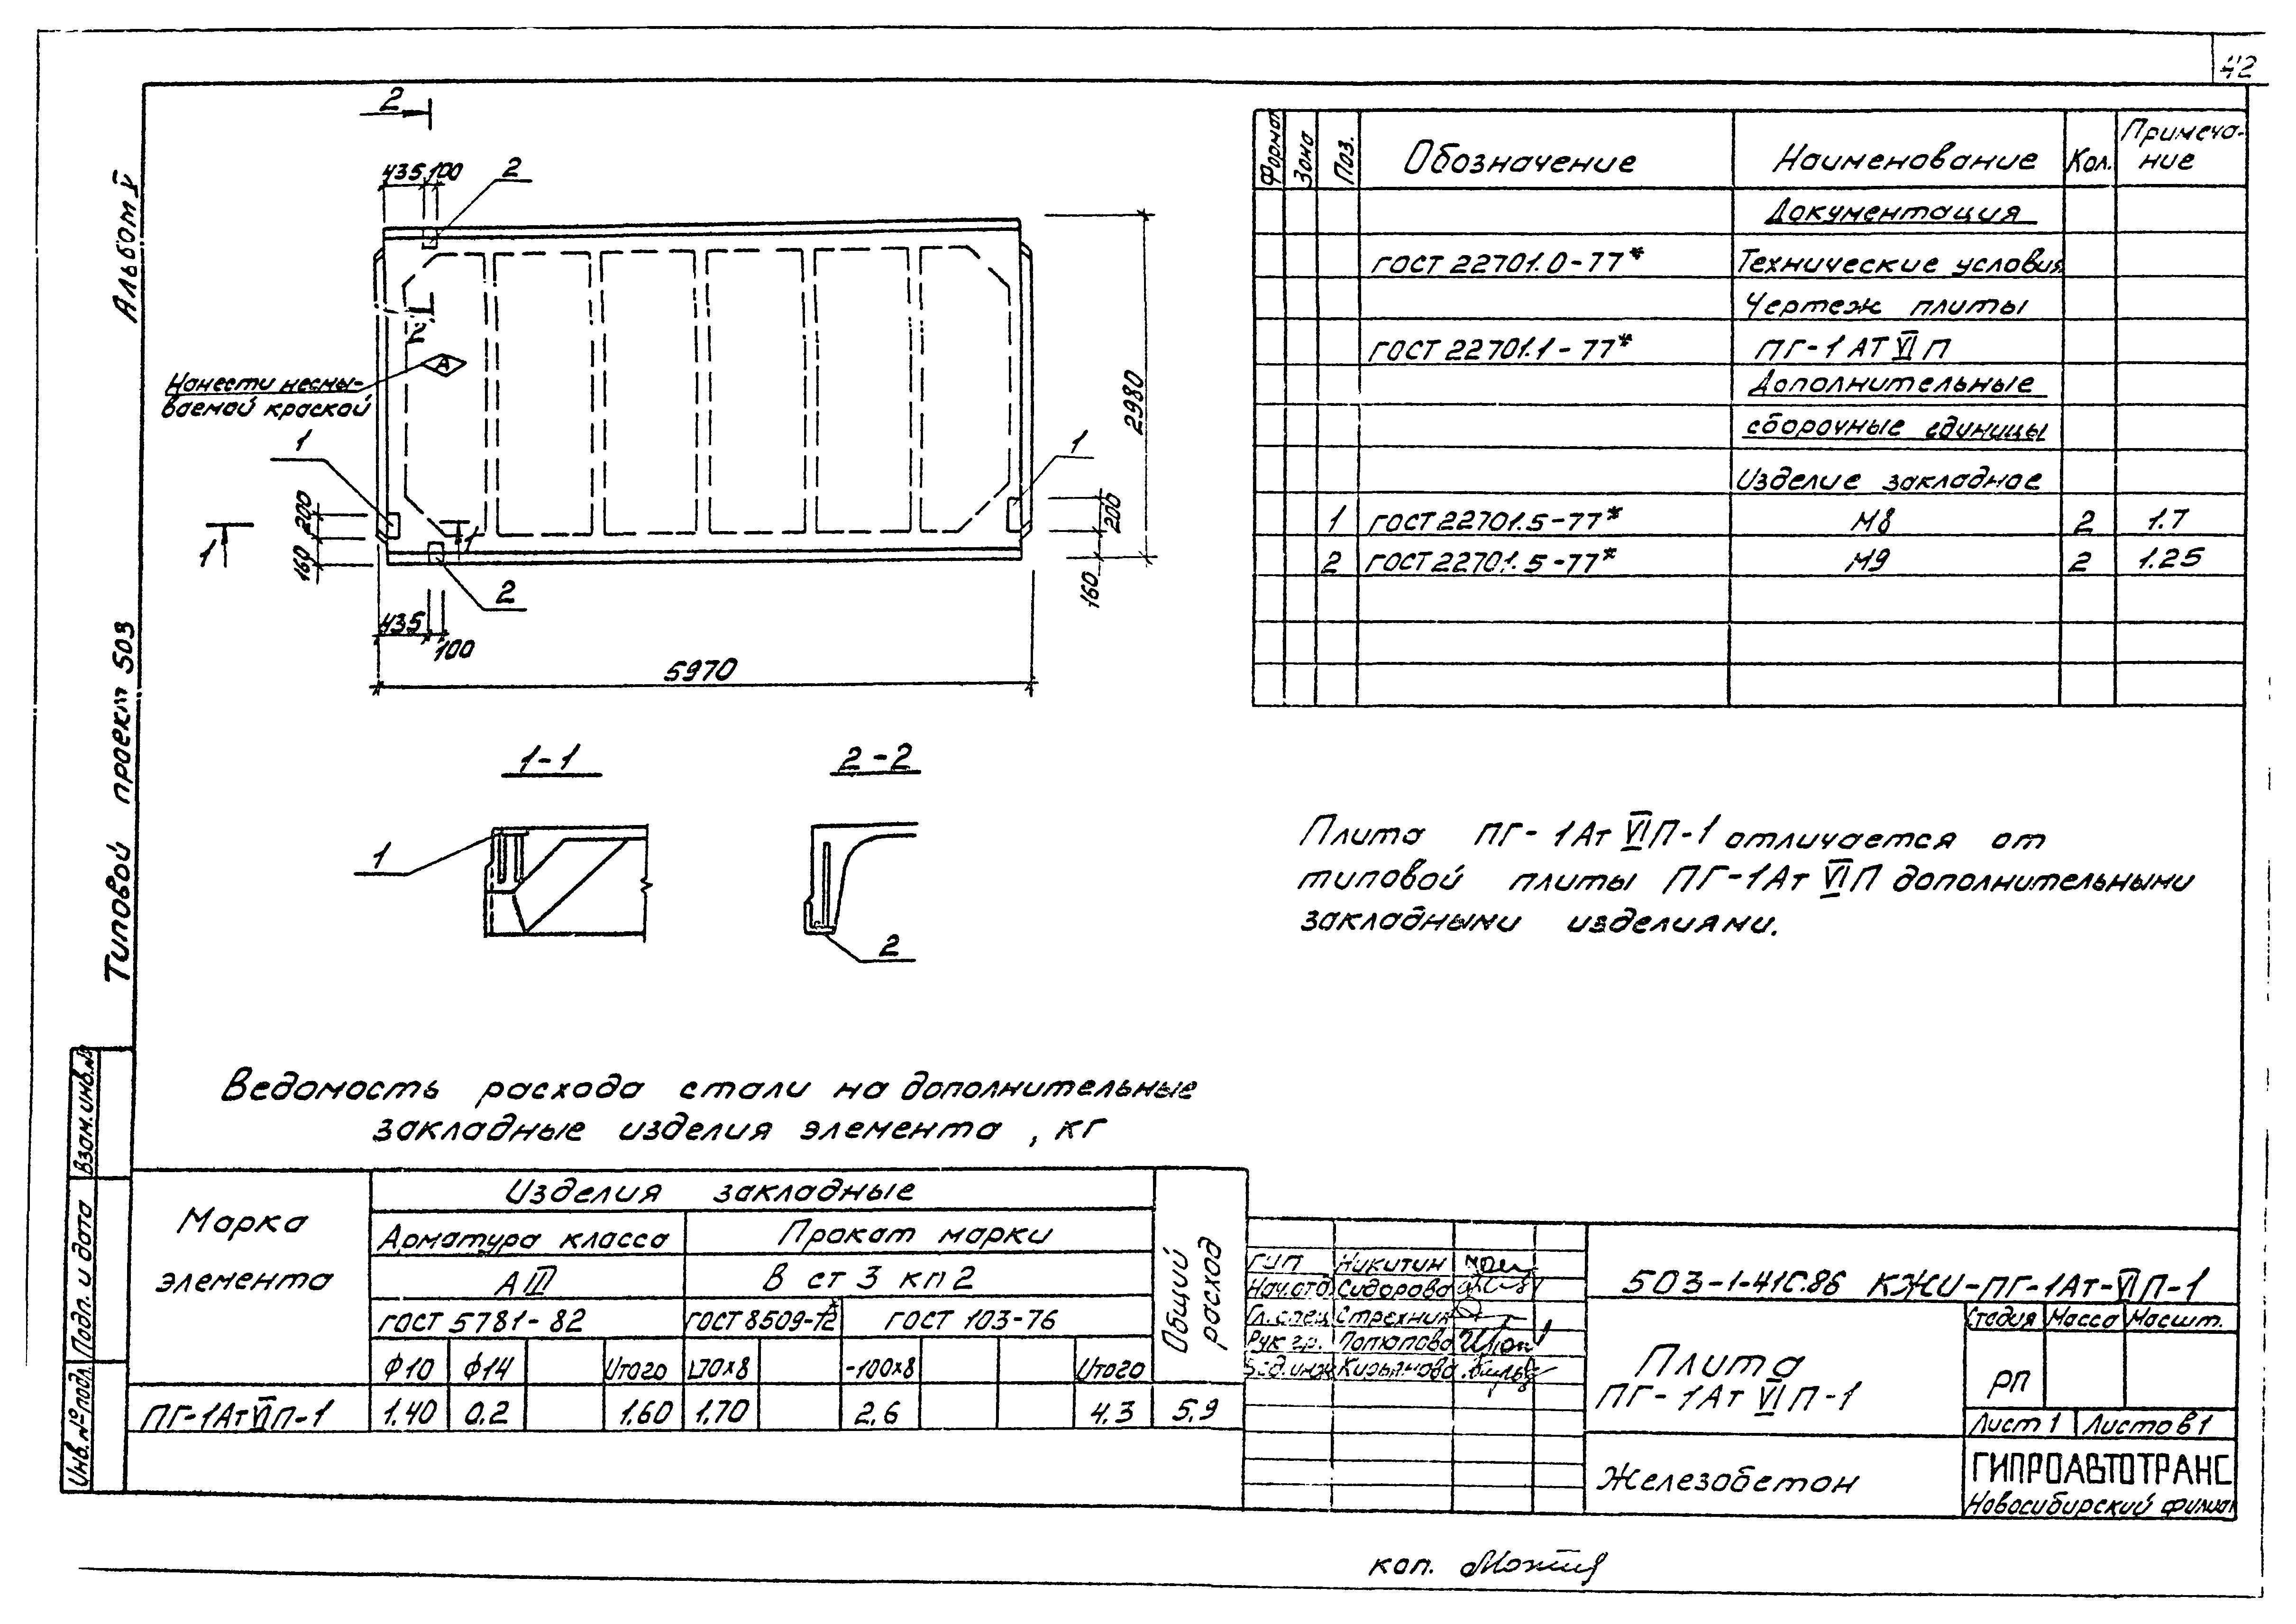 42
Альбом V
Типовой проект 503
Взам.инв.№
Подп. и дата
Инв.№ подл.
2
435 100
2
2
Нанести несмы-
ваемой краской
А
1
1
200
160
1
1
2980
200
160
2
435
100
5970
1-1
2-2
1
2
Формат Зона Поз. Обозначение Наименование Кол. Примеча-
ние
Документация
ГОСТ 22701.0-77* Технические условия
Чертеж плиты
ГОСТ 22701.1-77* ПГ-1АТ VI П
Дополнительные
сборочные единицы
Изделие закладное
1 ГОСТ 22701.5-77* М8 2 1.7
2 ГОСТ 22701.5-77* М9 2 1.25
Плита ПГ-1Ат VI П-1 отличается от
типовой плиты ПГ-1Ат VI П дополнительными
закладными изделиями.
Ведомость расхода стали на дополнительные
закладные изделия элемента, кг
Марка
элемента
Изделия закладные
Общий
расход
Арматура класса Прокат марки
А III В ст 3 кп 2
ГОСТ 5781-82 ГОСТ 8509-72* ГОСТ 103-76
Ф10 Ф14 Итого L70x8 -100x8 Итого
ПГ-1Ат VI П-1 1.40 0.2 1.60 1.70 2.6 4.3 5.9
ГИП Никитин
Нач.отд. Сидорова
Гл.спец. Стрехнин
Рук гр. Попюпова
Вед.инж. Кирьянова
503-1-41С.86 КЖИ-ПГ-1Ат-VI П-1
Плита
ПГ-1Ат VI П-1
Стадия Масса Масшт.
РП
Лист 1 Листов 1
Железобетон
ГИПРОАВТОТРАНС
Новосибирский филиал
коп.